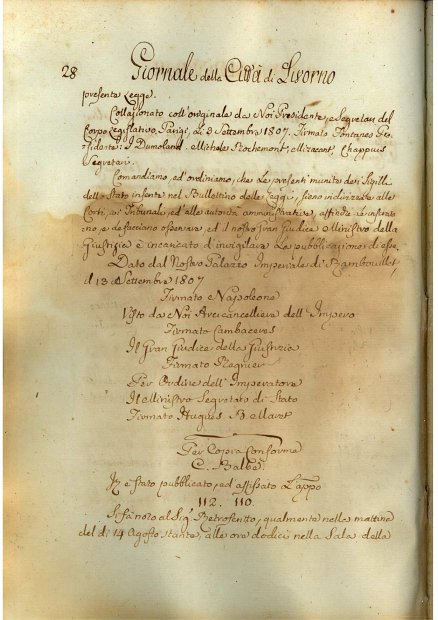 28 Giornale della Città di Livorno
presente Legge.
Collazionato coll'originale da Noi Presidente, e Segretari del
Corpo Legislativo, Parigi, li 3 Settembre 1807. Firmato Fontanes Pre-
sidente; J. Dumolard. Michelet Rochemont. Chappuis
Segretari.
Comandiamo, ed ordiniamo, che le presenti munite dei Sigilli
dello Stato inserite nel Bullettino delle Leggi, sieno indirizzate alle
Corti, ai Tribunali, ed alle autorità amministrative, affinchè
no, e facciano osservare, ed il nostro Gran Giudice Ministro della
Giustizia è incaricato d'invigilare la pubblicazione di esse.
Dato dal Nostro Palazzo Imperiale di Rambouillet,
il 13 Settembre 1807
Firmato Napoleone
Visto da Noi Arcicancelliere dell'Impero
Firmato Cambaceres
Il Gran Giudice della Giustizia
Firmato Regnier
Per Ordine dell'Imperatore
Il Ministro Segretario di Stato
Firmato Hugues B. Maret
Per Copia Conforme
C. Balbe.
è stato pubblicato, ed affissato
112. 110.
Si fà noto al Sigr. Petrosetto, qualmente nella mattina
del dì 14 Agosto stante, alle ore dodici nella Sala della